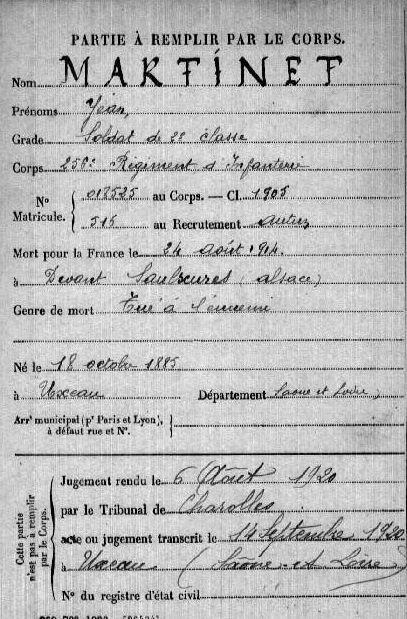 PARTIE À REMPLIR PAR LE CORPS.
Nom MARTINET
Prénoms Jean
Grade Soldat de 2e classe
Corps 256e Régiment d'Infanterie
N° Matricule. { 013525 au Corps. — Cl. 1905
515 au Recrutement Autun
Mort pour la France le 24 Août 1914
à Devant Saulxures (Alsace)
Genre de mort Tué à l'ennemi
Né le 18 octobre 1885
à Uxeau Département Saône et Loire
Arrt municipal (pr Paris et Lyon), à défaut rue et N°. }
Cette partie n'est pas à remplir par le Corps.
Jugement rendu le 6 Août 1920
par le Tribunal de Charolles
acte ou jugement transcrit le 14 Septembre 1920
à Uxeau (Saône-et-Loire)
N° du registre d'état civil